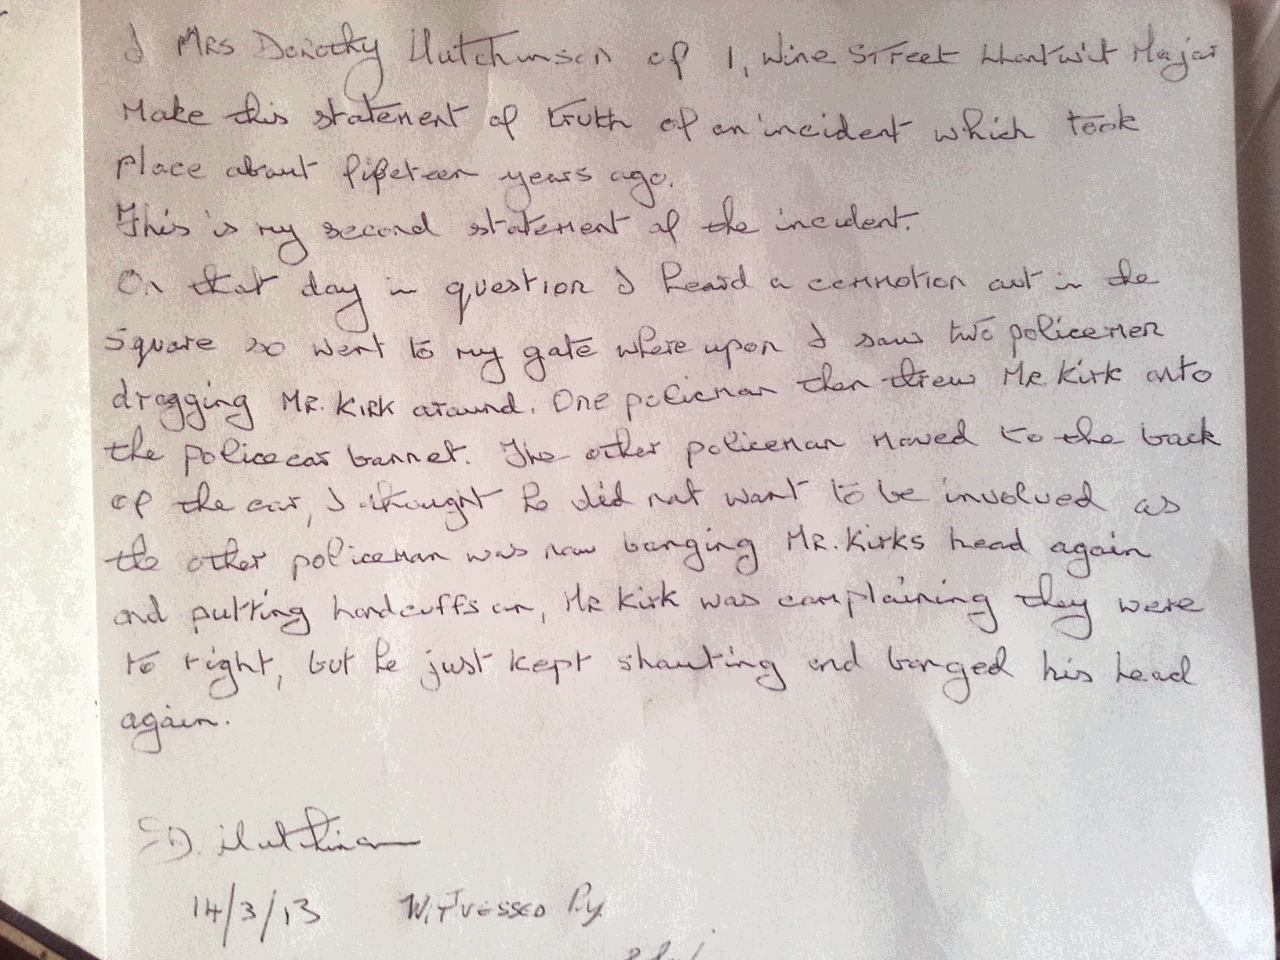 I MRS Dorothy Hutchinson of 1, Wine Street Llantwit Major
Make this statement of truth of an incident which took
place about fifeteen years ago.
This is my second statement of the incident.
On that day in question I heard a commotion out in the
square so went to my gate where upon I saw two policemen
dragging MR. KIRK around. One policman then threw MR. Kirk onto
the police car bonnet. The other policeman moved to the back
of the car, I thought he did not want to be involved as
the other policeman was now banging MR. Kirks head again
and putting handcuffs on, MR Kirk was complaining they were
to tight, but he just kept shouting and banged his head
again.
D. Hutchinson
14/3/13 WITNESSED By